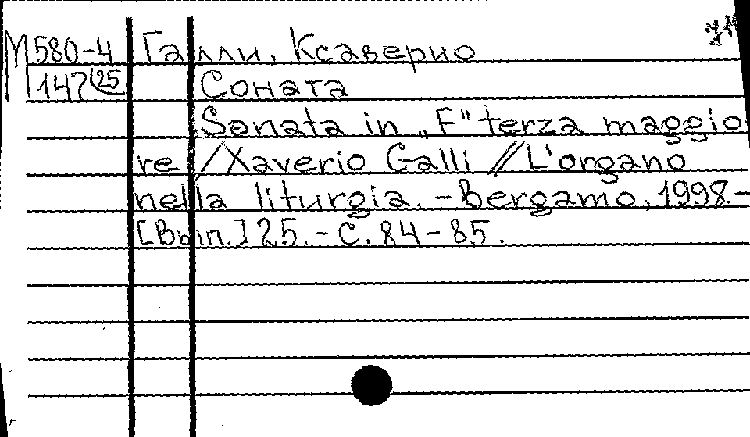 М580-4 Галли, Ксаверио
147(25 Соната
Sonata in „F" terza maggio
re / Xaverio Galli // L'organo
nella liturgia. - Bergamo, 1998. -
[Вып.] 25. - С. 84-85.